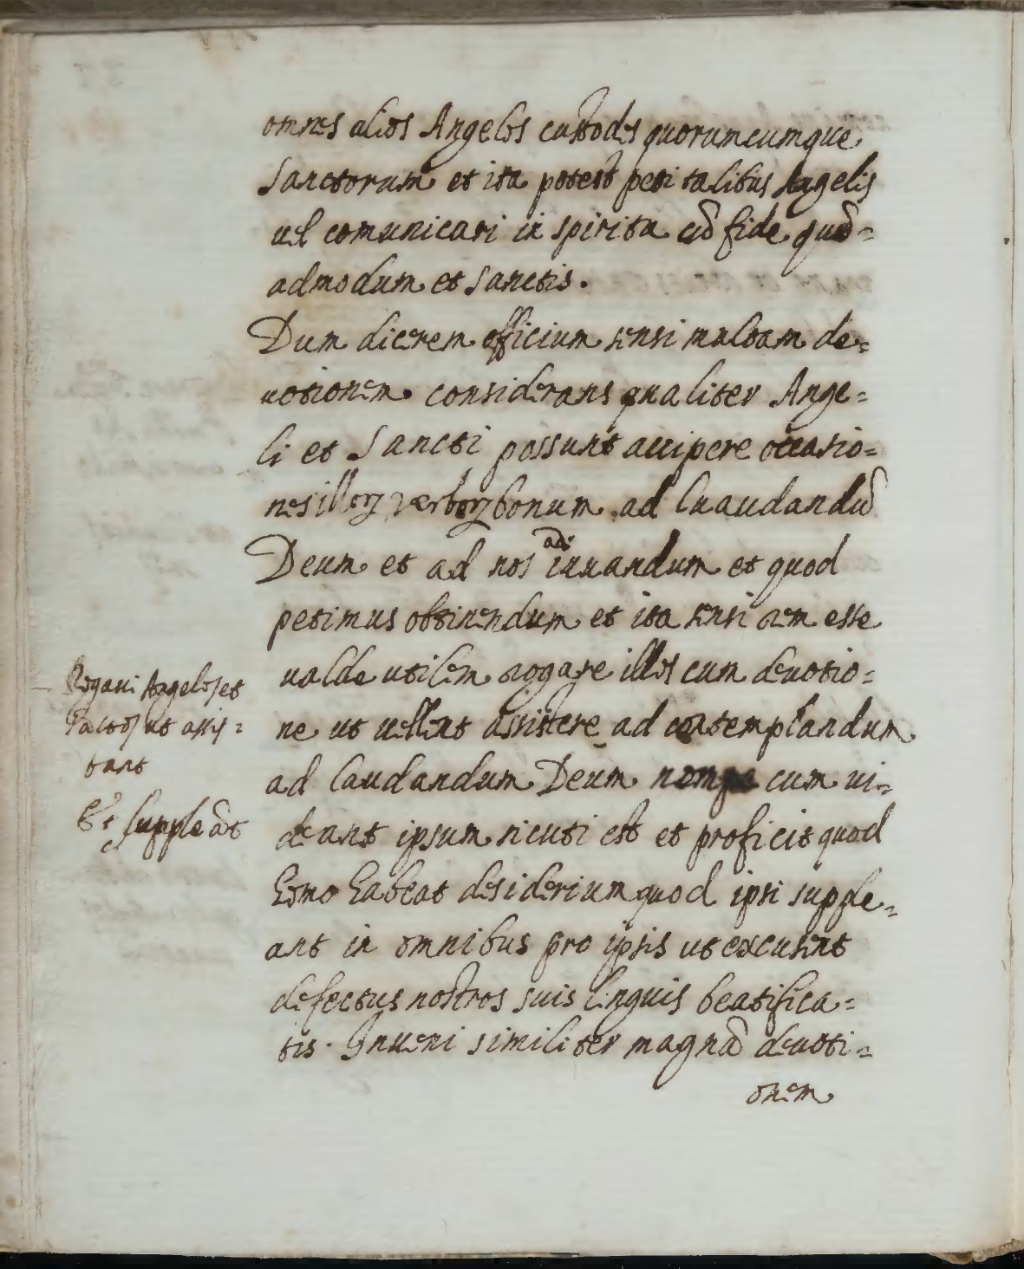 omnes alios Angelos custodes quorumcumque
Sanctorum et ita potest peti talibus Angelis
uel comunicari in spiritu cũ fide quẽ=
admodum et Sanctis.
Dum dicerem officium sensi multam de=
uotionem considerans qualiter Ange=
li et Sancti possunt accipere occasio=
nes illorꝝ verborꝝ bonum ad laudandũ
Deum et ad nos adiuuandum et quod
petimus obtinendum et ita sensi rem esse
ualde utilem rogare illos cum deuotio=
ne ut uellent assistere ad contemplandum
ad laudandum Deum cum ui=
deant ipsum sicuti est et proficit quod
homo habeat desiderium quod ipsi supple=
ant in omnibus pro ipsis ut excusent
defectus nostros suis linguis beatifica=
tis. Inueni similiter magnã deuoti=
onem
Rogaui Angelos et
Sactos ut assis=
tant
Et suppleãt